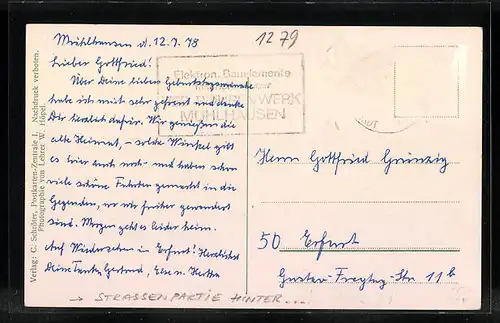 Mühlhausen d. 12.7.78
Lieber Gottfried!
Über Deine lieben Geburtstagswünsche
habe ich mich sehr gefreut und danke
Dir herzlich dafür. Wir genießen die
alte Heimat, – solche Winkel gibt
es hier auch noch – und haben schon
viele schöne Fahrten gemacht in die
Gegenden, wo wir früher gewandert
sind. Morgen geht es leider heim.
Auf Wiedersehen in Erfurt! Herzlichst
Deine Tante Gertrud, Else u. Herta
→ STRASSENPARTIE HINTER...
Verlag: C. Schlüter, Postkarten-Zentrale I. Nachdruck verboten.
Photographie von Lehrer W. Höpel.
1279
Elektron. Bauelemente
WERK
MÜHLHAUSEN
Herrn Gottfried Grünzig
50 Erfurt
Gustav-Freytag-Str. 11b